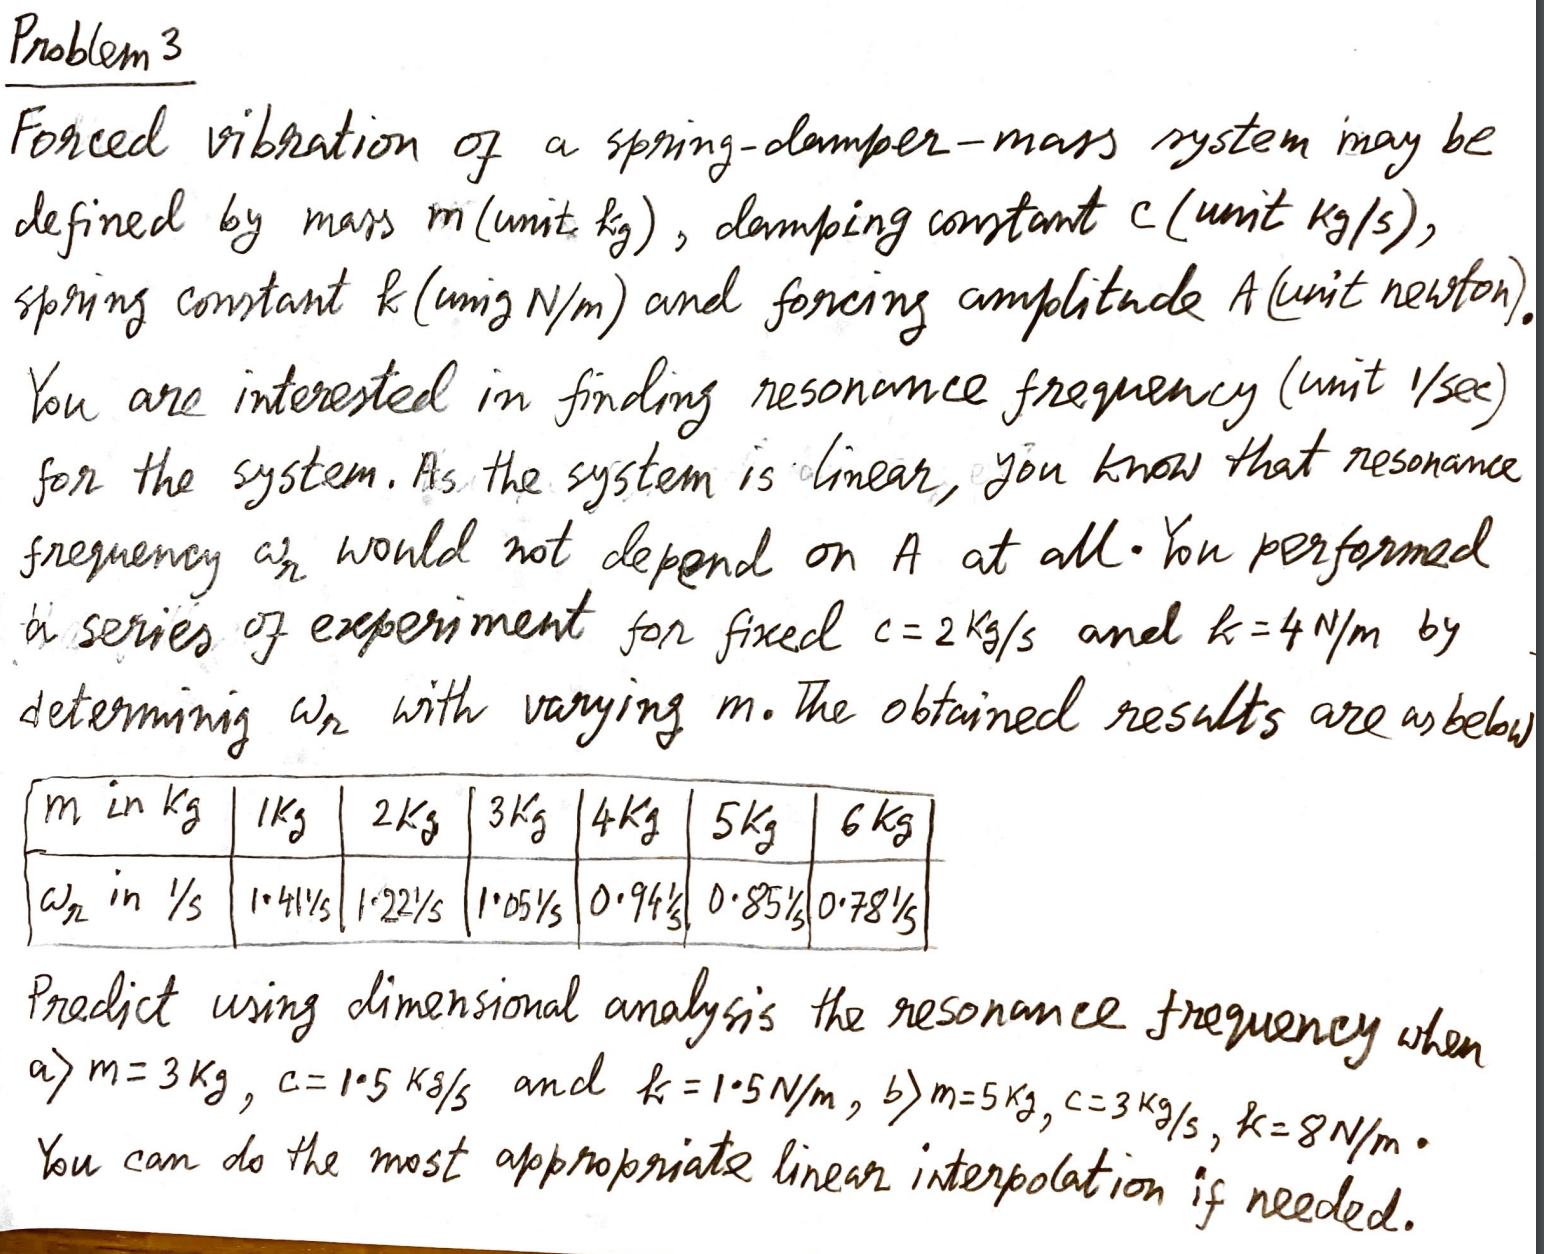 Problem 3
Forced vibration of a spring-damper-mass system may be
defined by mass m (unit kg), damping constant c (unit kg/s),
spring constant k (unig N/m) and forcing amplitude A (unit newton).
You are interested in finding resonance frequency (unit 1/sec)
for the system. As the system is linear, you know that resonance
frequency ωr would not depend on A at all. You performed
a series of experiment for fixed c = 2 Kg/s and k = 4 N/m by
determinig ωr with varying m. The obtained results are as below
m in kg | 1Kg | 2Kg | 3Kg | 4Kg | 5Kg | 6Kg
ωr in 1/s | 1.41 1/s | 1.22 1/s | 1.05 1/s | 0.94 1/s | 0.85 1/s | 0.78 1/s
Predict using dimensional analysis the resonance frequency when
a) m = 3 Kg, c = 1.5 Kg/s and k = 1.5 N/m, b) m = 5 Kg, c = 3 Kg/s, k = 8 N/m.
You can do the most appropriate linear interpolation if needed.